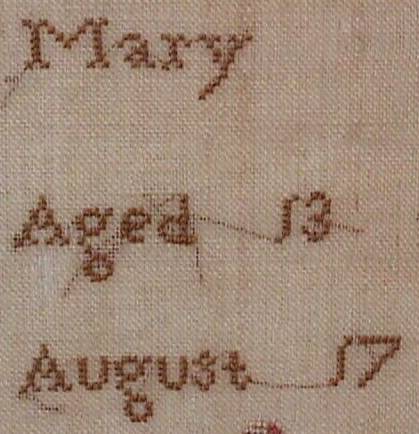 Mary
Aged 13
August 17